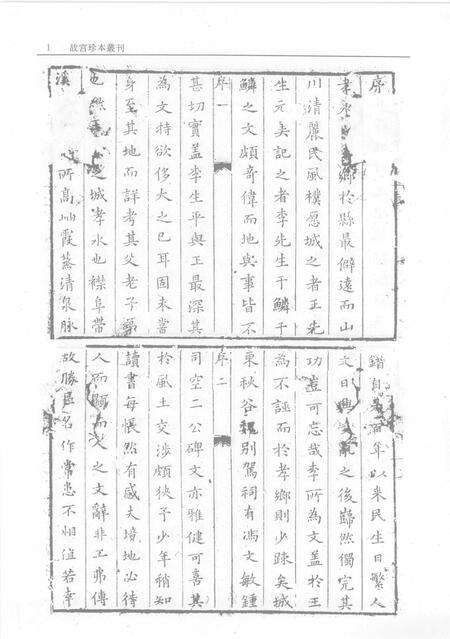 1 故宫珍本叢刊
序
鄉於縣最僻遠而山
川清麗民風樸愿城之者王先
生元美記之者李先生于鱗于
鱗之文頗奇偉而地與事皆不
序一
甚切實蓋李生平與王最深其
為文特欲侈大之已耳固未嘗
身至其地而詳考其父老子
也然之城孝水也襟阜帶
溪所高霞蒸清泉脉
錯自百年以來民生日繁人
文日興亂之後巋然獨完其
功豈可忘哉李所為文蓋於王
為不誣而於孝鄉則少踈矣城
東秋谷魏別駕祠有馮文敏鍾
序二
司空二公碑文亦雅健可喜其
於風土交涉頗狹予少年稍知
讀書每悵然有感夫培地必待
人而顯而人之文辭非工弗傳
故勝區名作常患不相值若幸